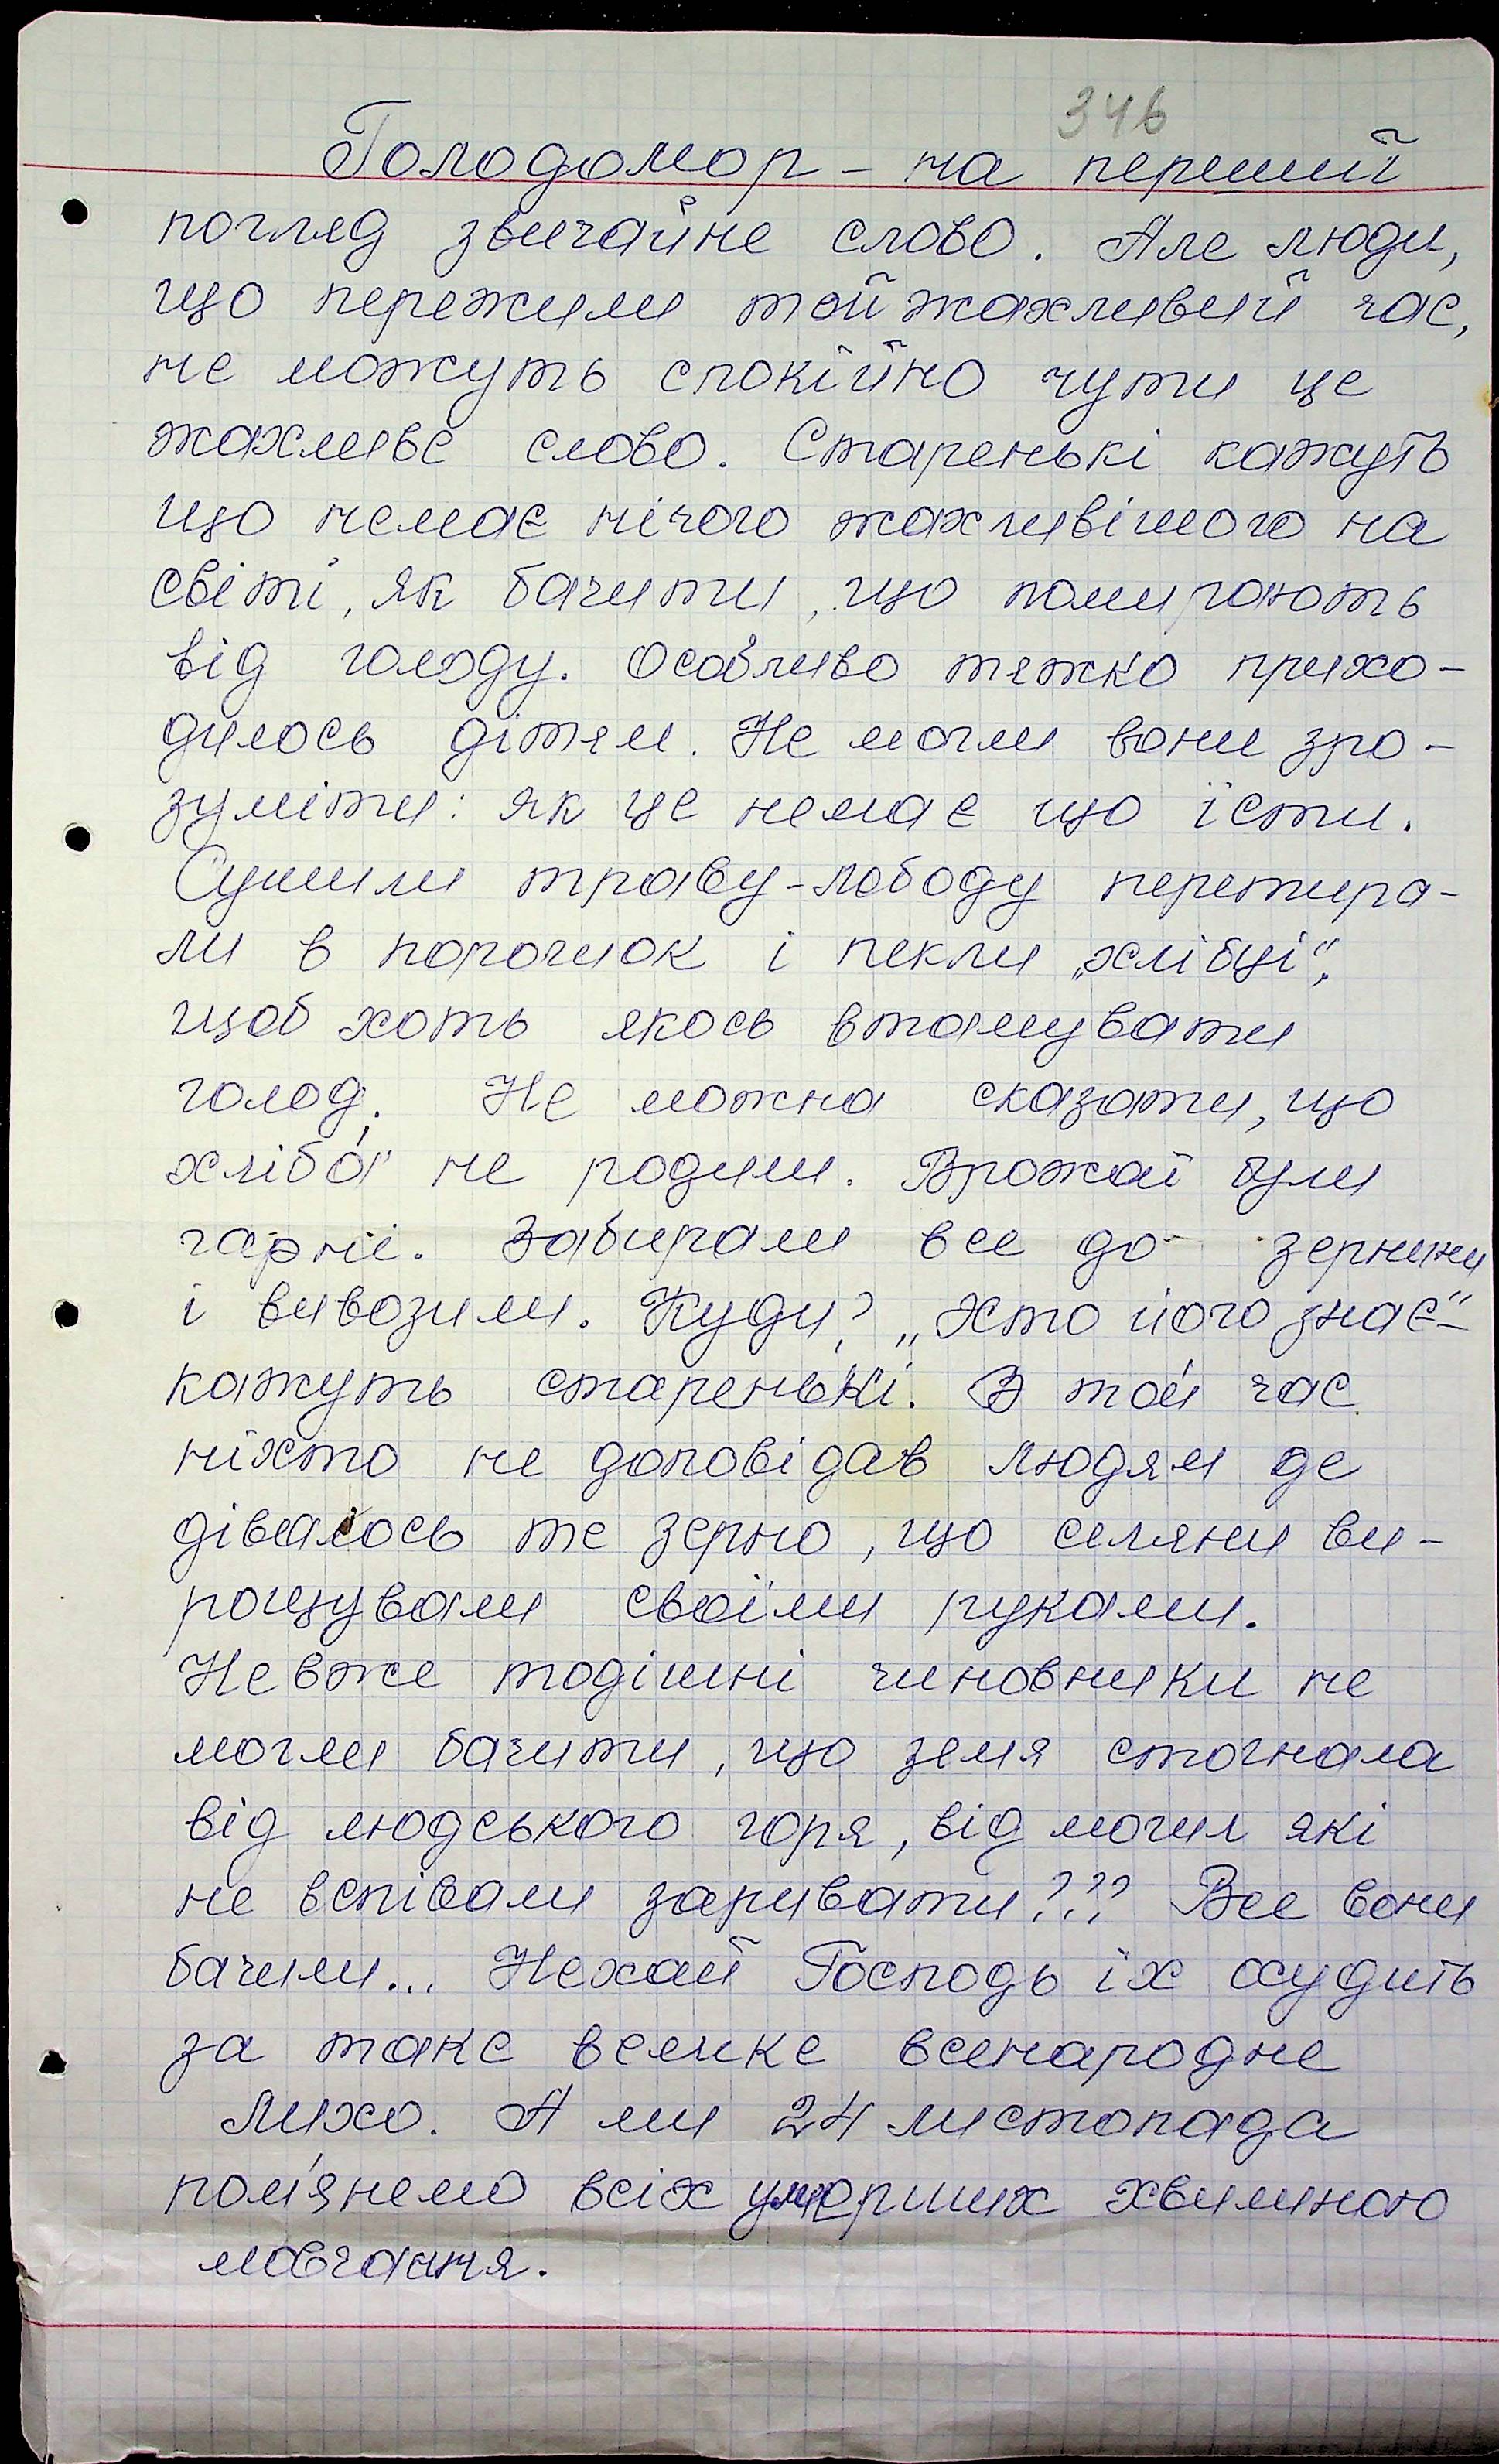 346
Голодомор – на перший
погляд звичайне слово. Але люди,
що пережили той жахливий час,
не можуть спокійно чути це
жахливе слово. Старенькі кажуть
що немає нічого жахливішого на
світі, як бачити, що помирають
від голоду. Особливо тяжко прихо-
дилось дітям. Не могли вони зро-
зуміти: як це немає що їсти.
Сушили траву-лободу перетира-
ли в порошок і пекли „хлібці",
щоб хоть якось втамувати
голод. Не можна сказати, що
хліба не родили. Врожаї були
гарні. Забирали все до зернини
і вивозили. Куди? „Хто його знає" –
кажуть старенькі. В той час
ніхто не доповідав людям де
дівалось те зерно, що селяни ви-
рощували своїми руками.
Невже тодішні чиновники не
могли бачити, що земя стогнала
від людського горя, від могил які
не вспівали заривати??? Все вони
бачили... Нехай Господь їх осудить
за таке велике всенародне
лихо. А ми 24 листопада
пом'янемо всіх умерших хвилиною
мовчання.